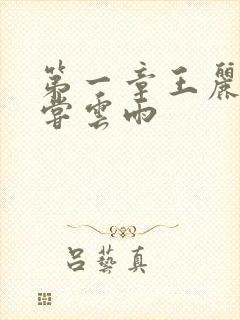 第一章王麗
嘗雲雨
呂藝真